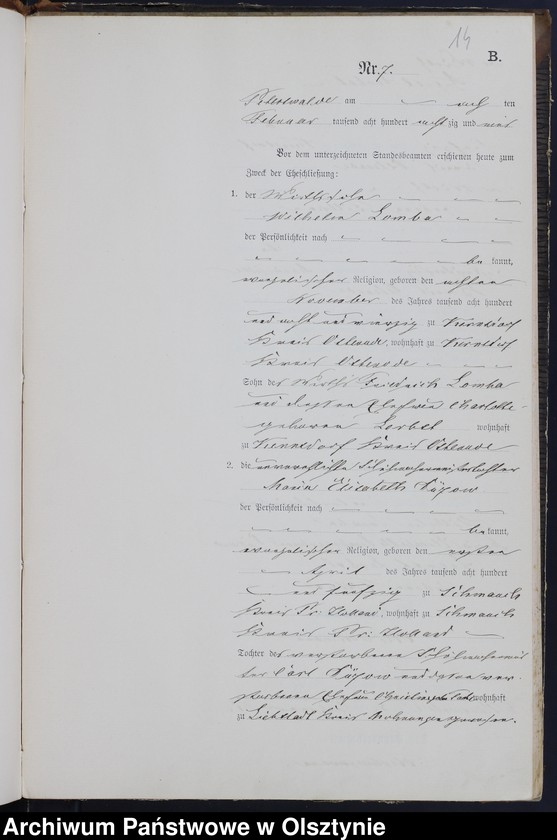 14
B.
Nr. 7.
Peterswalde am acht ten
Februar tausend acht hundert acht zig und
Vor dem unterzeichneten Standesbeamten erschienen heute zum
Zweck der Eheschließung:
1. der Wirthssohn
Wilhelm Lomba
der Persönlichkeit nach
be kannt,
evangelischer Religion, geboren den achten
November des Jahres tausend acht hundert
und acht und vierzig zu
Kreis Osterode, wohnhaft zu
Kreis Osterode
Sohn des Wirths Friedrich Lomba
und dessen Ehefrau Charlotte
geborene wohnhaft
zu Kreis Osterode
2. die unverehelichte
Maria Elisabeth
der Persönlichkeit nach
be kannt,
evangelischer Religion, geboren den ersten
April des Jahres tausend acht hundert
und fünfzig zu Schmauch
Kreis Pr. Holland, wohnhaft zu Schmauch
Kreis Pr. Holland
Tochter des verstorbenen
Carl und dessen ver
storbenen Ehefrau wohnhaft
zu Liebstadt Kreis Mohrungen gewesen.
Archiwum Państwowe w Olsztynie